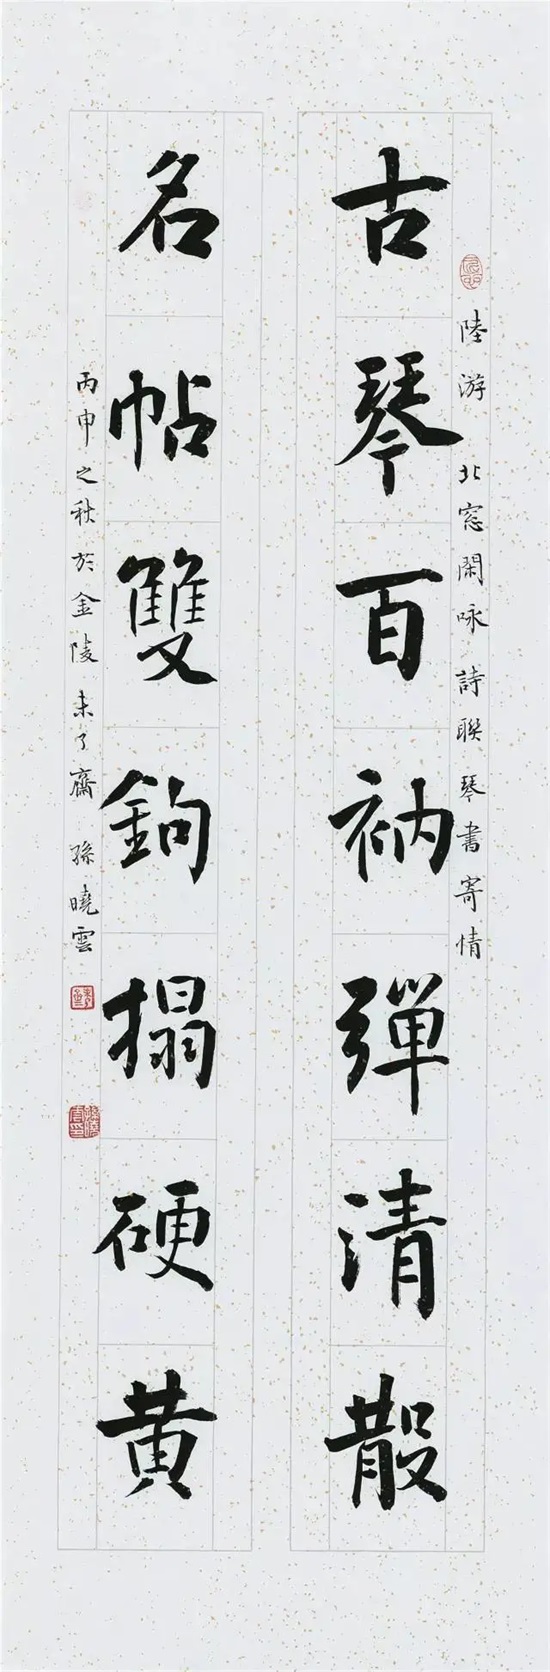 陸游北窓閑咏詩聯琴書寄情
古琴百衲彈清散
名帖雙鉤搨硬黄
丙申之秋於金陵未了齋孫曉雲